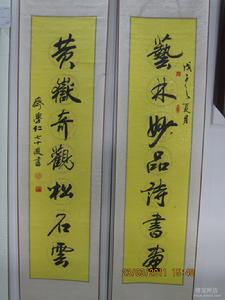 藝林妙品詩書畫
戊子之夏月
黃嶽奇觀松石雲
七十週書
23/03/2011 15:40